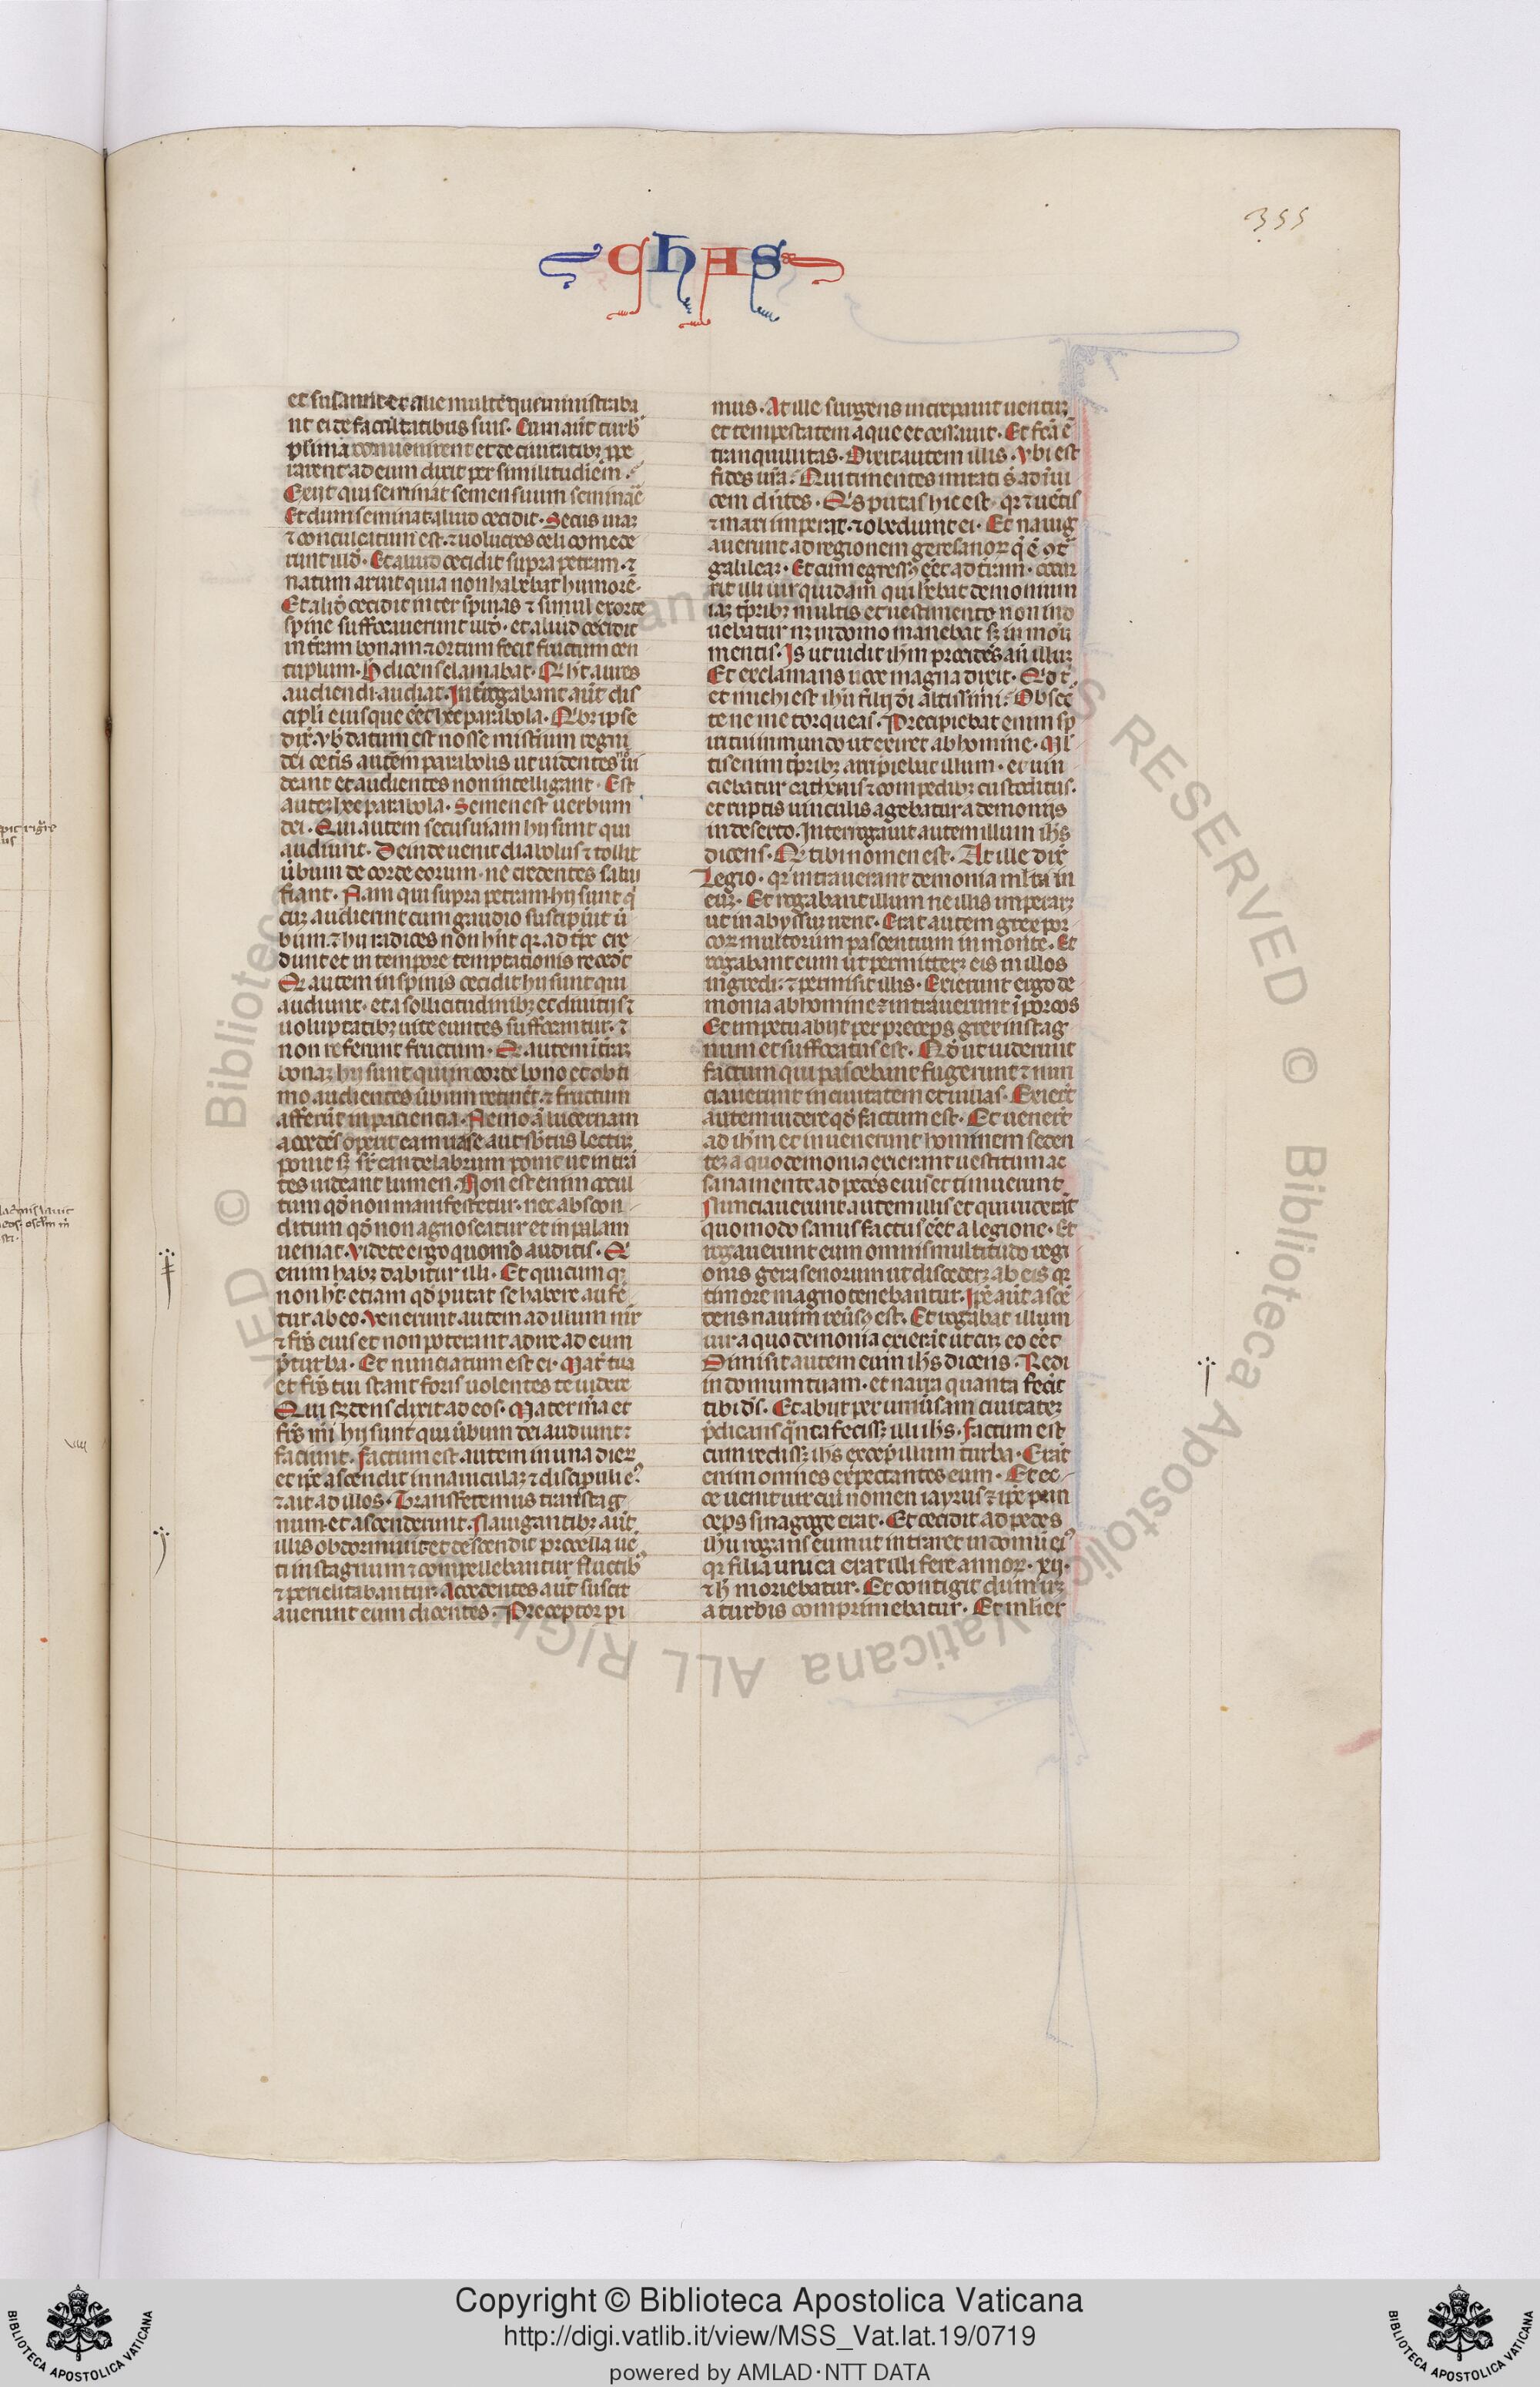 355
chas
et susanna et alie multe que ministraba
nt ei de facultatibus suis. Cum aūt turb
plurima convenirent et de ciuitatibꝫ ꝓpe
rarent ad eum dixit per similitudiem.
Exijt qui seminat semen suum seminaē
Et dum seminat aliud cecidit. Secus uiaꝫ
⁊ conculcatum est. ⁊ uolucres celi comede
runt illđ. Et aliud cecidit supra petram. ⁊
natum aruit quia non habebat humorē.
Et aliđ cecidit inter spinas ⁊ simul exorte
spine suffocauerunt illđ. et aliud cecidit
in t̄ram bonam ⁊ ortum fecit fructum cen
tuplum. h̄ dicens clamabat. Q̄ ht̄ aures
audiendi audiat. Int̄rogabant aūt dis
cipli eius que ēēt hec parabola. Qͥbꝫ ipse
dix̄. vb̄ datum est nosse mist̄ium regni
dei cet̄is autem parabolis ut uidentes nō ui
deant et audientes non intelligant. Est
auteꝫ hec parabola. Semen est uerbum
dei. Qui autem secus uiam hij sunt qui
audiunt. Deinde uenit diabolus ⁊ tollit
ūbum de corde eorum. ne credentes salui
fiant. Nam qui supra petram hij sunt qͥ
cuꝫ audierint cum gaudio suscipiūt ū
bum. ⁊ hij radices non hn̄t qꝛ ad tp̄e cre
dunt et in tempore temptationis recedūt
Qđ autem in spinis cecidit hij sunt qui
audiunt. et a sollicitudinibꝫ et diuitijs ⁊
uoluptatibꝫ uite euntes suffocantur. ⁊
non referunt fructum. Qđ autem ī t̄raꝫ
bonaꝫ hij sunt qui in corde bono et obti
mo audientes ūbum retinēt ⁊ fructum
afferūt in paciencia. Nemo aͫ lucernam
accedēs operit eam uase aut sbtus lectuꝫ
ponit sꝫ sr̄ candelabrum ponit ut intrā
tes uideant lumen. Non est enim occul
tum qđ non manifestetur. nec abscon
ditum qđ non agnoscatur et in palam
ueniat. Videte ergo quomō auditis. Qͥ
enim habꝫ dabitur illi. Et quicumqꝫ
non ht̄. etiam qđ putat se habere aufe
tur ab eo. Venerunt autem ad illum mr̄
⁊ fr̄s eius et non poterant adire ad eum
p̄ turba. Et nunciatum est ei. Mat̄ tua
et fr̄s tui stant foris uolentes te uidere
Qui rn̄dens dixit ad eos. Mater m̄a et
fr̄s mi hij sunt qui ūbum dei audiunt ⁊
faciunt. Factum est autem in una dieꝝ
et ip̄e ascendit in nauiculaꝫ ⁊ discipuli eꝰ
⁊ ait ad illos. Transfretemus trans stag
num. et ascenderunt. Nauigantibꝫ aūt
illis obdormiuit. et descendit procella uē
ti in stagnum ⁊ compellebantur fluctibꝰ
⁊ periclitabantur. Accedentes aūt suscit
auerunt eum dicentes. Preceptor pi
mus. At ille surgens increpauit uentuꝫ
et tempestatem aque et cessauit. Et fc̄a ē
tranquillitas. Dixit autem illis. Vbi est
fides ur̄a. Qui timentes mirati sͭ ad īui
cem dn̄tes. Qͥs putas hic est. qꝛ ⁊ uētis
⁊ mari imperat. ⁊ obediunt ei. Et nauig
auerunt ad regionem gerasanoꝝ q̄ ē ꝯt̄
galileaꝫ. Et cum egressꝰ eēt ad t̄ram. occur
rit illi uir quidam qui hēbat demonium
iaꝫ tp̄ribꝫ multis et uestimento non ind
uebatur nꝫ in domo manebat sꝫ in monu
mentis. Is ut uidit ih̄m procidēs an̄ illuꝫ
Et exclamans uoce magna dixit. Qđ t̄
et michi est ih̄u filij di altissimi. Obsec
te ne me torqueas. Precipiebat enim sp̄
itui inmundo ut exiret ab homine. Ml̄
tis enim tp̄ribꝫ arripiebat illum. et uin
ciebatur cathenis ⁊ compedibꝫ custoditus.
et ruptis uinculis agebatur a demonijs
in deserto. Interrogauit autem illum ih̄s
dicens. Qđ tibi nomen est. At ille dix̄
Legio. qꝛ intrauerant demonia ml̄ta in
euꝫ. Et rogabant illum ne illis imperaꝫ
ut in abyssuꝫ irent. Erat autem grex por
coꝝ multorum pascentium in monte. Et
rogabant eum ut permitteꝫ eis in illos
ingredi. ⁊ permisit illis. Exierunt ergo de
monia ab homine ⁊ intrauerunt ī porcos
Et impetu abijt per preceps grex in stag
num et suffocatus est. Qđ ut uiderunt
factum qui pascebant fugerunt ⁊ nun
ciauerunt in ciuitatem et uillas. Exierūt
autem uidere qđ factum est. Et uenerūt
ad ih̄m et inuenerunt hominem seden
teꝫ a quo demonia exierant uestitum ac
sana mente ad pedes eius et timuerunt
Nunciauerunt autem illis et qui uiderāt
quomodo sanus factus eēt a legione. Et
rogauerunt eum omnis multitudo regi
onis gerasenorum ut discedeꝫ ab eis qꝛ
timore magno tenebantur. Ip̄e aūt ascē
dens nauim reūsꝰ est. Et rogabat illum
uir a quo demonia exierāt ut cuꝫ eo eēt
Dimisit autem eum ih̄s dicens. Redi
in domum tuam. et narra quanta fecit
tibi ds̄. Et abijt per uniūsam ciuitateꝫ
p̄dicans qͣnta fecissꝫ illi ih̄s. Factum est
cum redissꝫ ih̄s excepͥ illum turba. Erāt
enim omnes expectantes eum. Et ec
ce uenit uir cui nomen iayrus ⁊ ip̄e prin
ceps sinagoge erat. Et cecidit ad pedes
ih̄u rogans eum ut intraret in domū eiꝰ
qꝛ filia unica erat illi fere annoꝝ. xij.
⁊ h̄ moriebatur. Et contigit dum iꝫ
a turbis comprimebatur. Et mulier
Copyright © Biblioteca Apostolica Vaticana
http://digi.vatlib.it/view/MSS_Vat.lat.19/0719
powered by AMLAD·NTT DATA